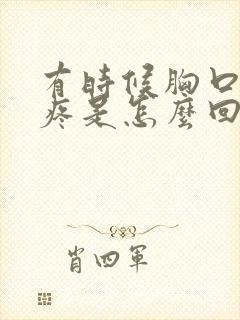 有時候胸口
疼是怎麼回
肖四軍